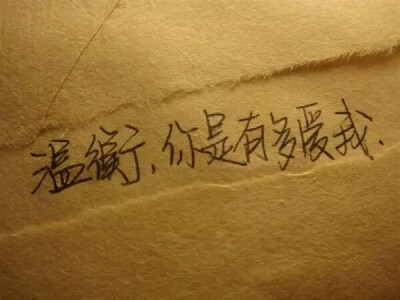 温衡、你是有多爱我.